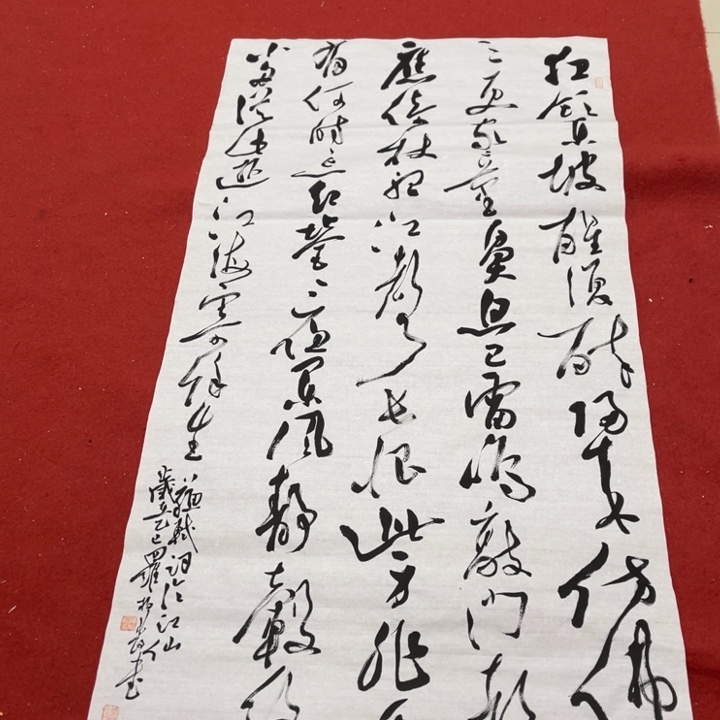 夜飲東坡醒復醉歸来仿佛
三更家童鼻息已雷鳴敲門都
應倚杖聽江聲長恨此身非
有何時忘却營〻夜闌風靜縠紋
小舟從此逝江海寄餘生
蘇軾詞臨江仙
歲在乙巳羅書